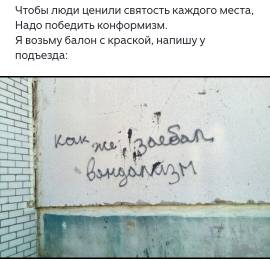 Чтобы люди ценили святость каждого места,
Надо победить конформизм.
Я возьму балон с краской, напишу у
подъезда:
как же заебал
вандализм